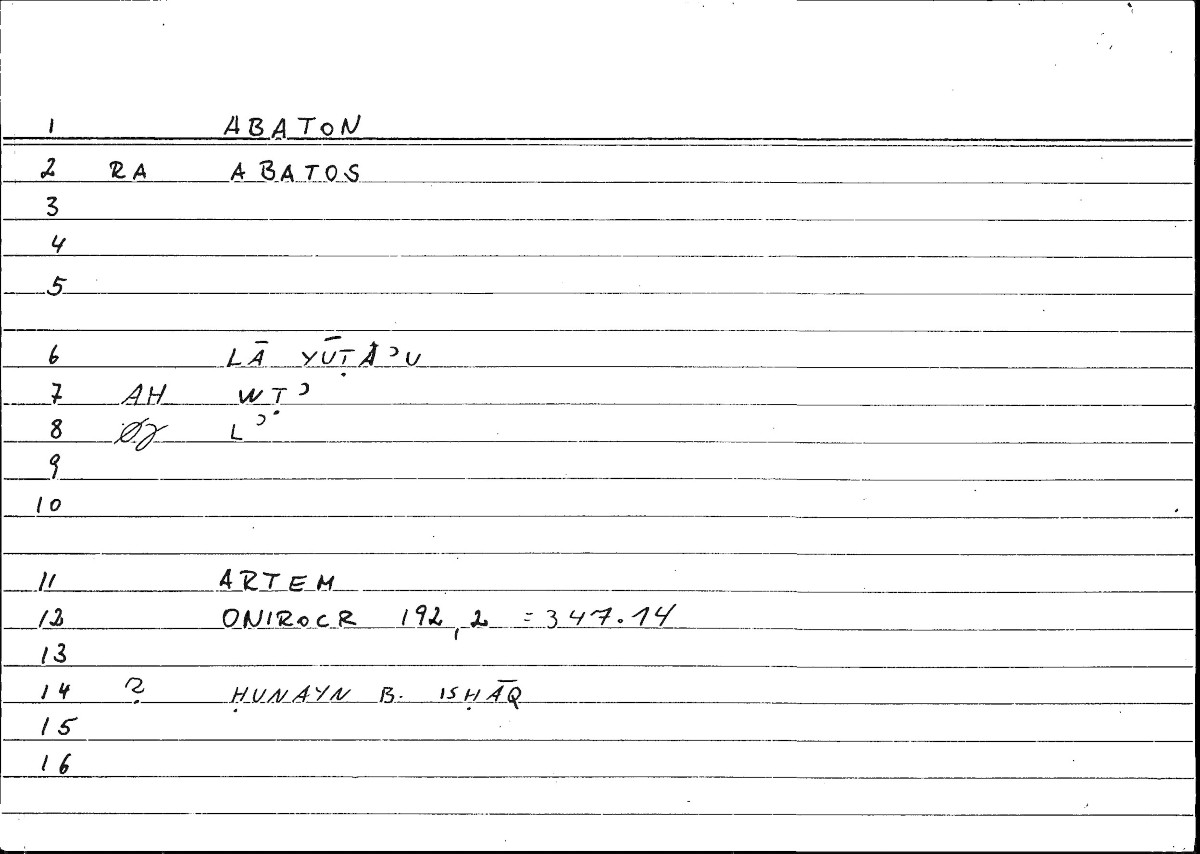 1 ABATON
2 RA ABATOS
3
4
5
6 LĀ YŪṬAʾU
7 AH WṬʾ
8 Lʾ
9
10
11 ARTEM
12 ONIROCR 192,2 = 347.14
13
14 ? ḤUNAYN B. ISḤĀQ
15
16